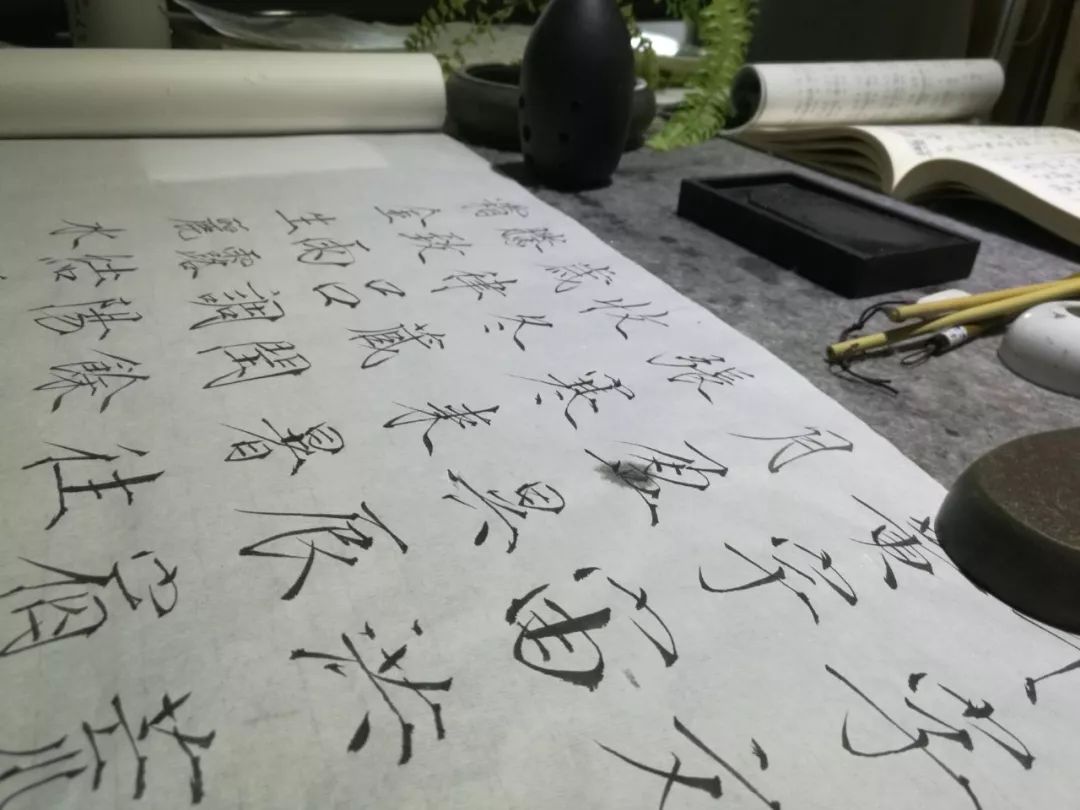 字文
黃宇宙洪荒
月盈昃辰宿
張寒來暑往
收冬藏閏餘
歲律呂調陽
騰致雨露結
霜金生麗水